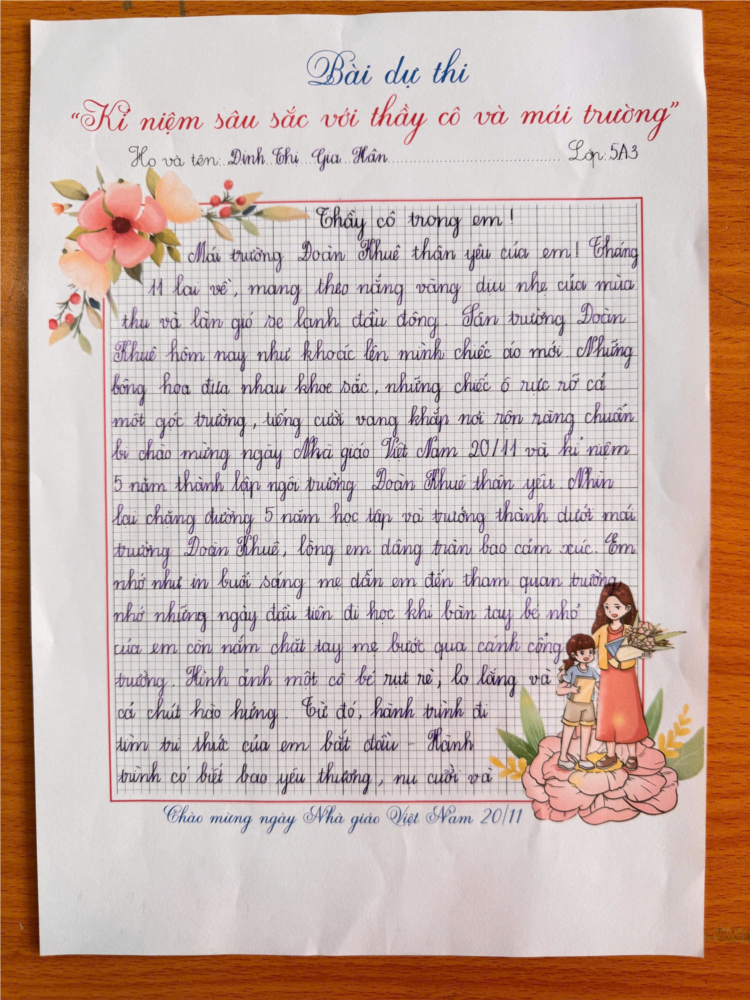 Bài dự thi
"Kỉ niệm sâu sắc với thầy cô và mái trường"
Họ và tên: Đinh Thị Gia Hân Lớp: 5A3
Thầy cô trong em!
Mái trường Đoàn Khuê thân yêu của em! Tháng
11 lại về, mang theo nắng vàng dịu nhẹ của mùa
thu và làn gió se lạnh đầu đông. Sân trường Đoàn
Khuê hôm nay như khoác lên mình chiếc áo mới. Những
bông hoa đua nhau khoe sắc, những chiếc ô rực rỡ cả
một góc trường, tiếng cười vang khắp nơi rộn ràng chuẩn
bị chào mừng ngày Nhà giáo Việt Nam 20/11 và kỉ niệm
5 năm thành lập ngôi trường Đoàn Khuê thân yêu. Nhìn
lại chặng đường 5 năm học tập và trưởng thành dưới mái
trường Đoàn Khuê, lòng em dâng tràn bao cảm xúc. Em
nhớ như in buổi sáng mẹ dẫn em đến tham quan trường,
nhớ những ngày đầu tiên đi học khi bàn tay bé nhỏ
của em còn nắm chặt tay mẹ bước qua cánh cổng
trường. Hình ảnh một cô bé rụt rè, lo lắng và
cả chút hào hứng. Từ đó, hành trình đi
tìm tri thức của em bắt đầu - Hành
trình có biết bao yêu thương, nụ cười và
Chào mừng ngày Nhà giáo Việt Nam 20/11